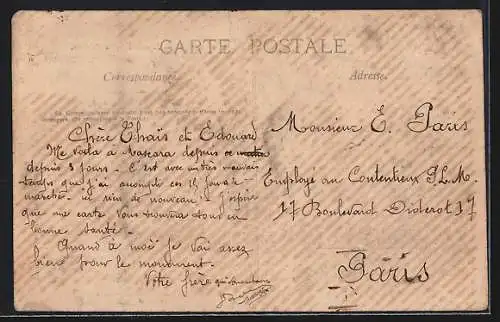 CARTE POSTALE
Correspondance
Adresse
Chère Thaïs et Edouard
Me voila à Mascara depuis ce matin
depuis 3 jours. C'est avec un très mauvais
temps que j'ai accompli ces 14 jours de
marche. ici rien de nouveau. J'espère
que ma carte vous trouvera tous en
bonne santé.
Quand à moi je vai assez
bien pour le moment.
Votre frère qui
Monsieur E. Paris
Employé au Contentieux P.L.M.
17 Boulevard Diderot 17
Paris